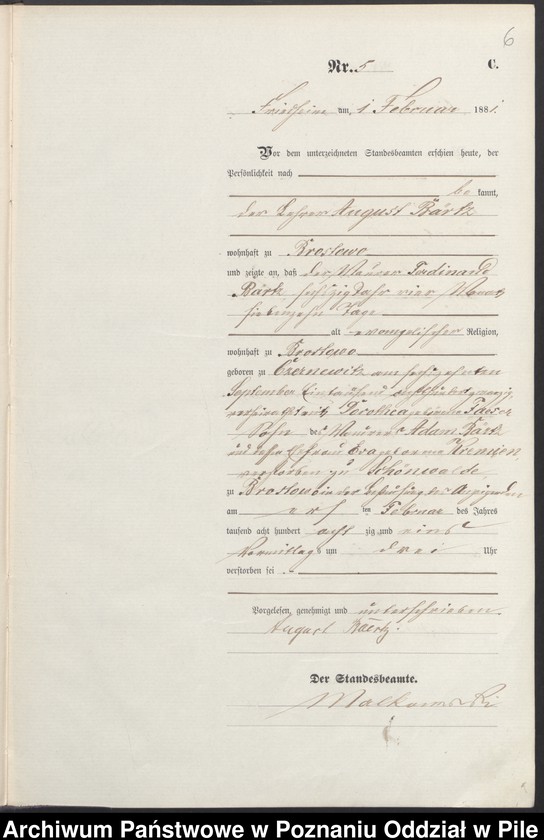 6
Nr. 5 C.
Friedheim am 1 Februar 1881.
Vor dem unterzeichneten Standesbeamten erschien heute, der
Persönlichkeit nach
be kannt,
der Lehrer August Bärtz
wohnhaft zu Brostowo
und zeigte an, daß der Maurer Ferdinand
Bärtz sechszig Jahr vier Monat
siebenzehn Tage
alt evangelischer Religion,
wohnhaft zu Brostowo
geboren zu am sechszehnten
September Eintausend
verheirathet mit geborene
Sohn des Maurers Adam Bärtz
und dessen Ehefrau Eva geborene
verstorben zu Schönwalde
zu Brostowo in der Behausung des Anzeigenden
am ersten Februar des Jahres
tausend acht hundert acht zig und eins
Vormittags um drei Uhr
verstorben sei
Vorgelesen, genehmigt und unterschrieben
August Baertz.
Der Standesbeamte.
Malkowski
Archiwum Państwowe w Poznaniu Oddział w Pile